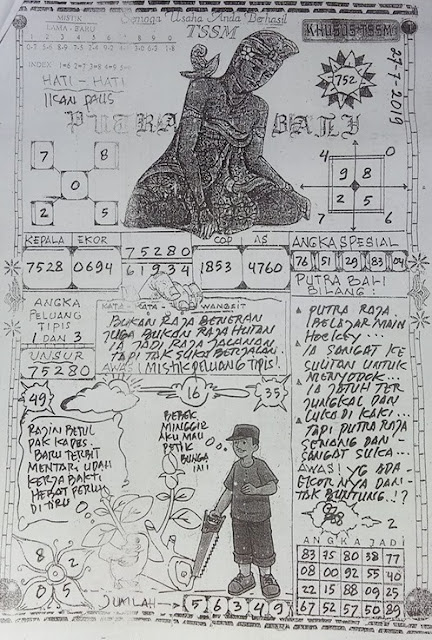 MISTIK
LAMA - BARU
1 2 3 4 5 6 7 8 9 0
Semoga Usaha Anda Berhasil
TSSM
KHUSUS TSSM
752
27-7-2019
HATI - HATI
PUTRA BALI
7 8
0
2 5
4 0
9 8
2 5
7 6
KEPALA EKOR
7528 0694
75280
61934
COP AS
1853 4760
ANGKA SPESIAL
76 51 29 83 04
ANGKA
PELUANG
TIPIS
1 DAN 3
UNSUR
75280
KATA - KATA WANGSIT
BUKAN RAJA BENERAN
JUGA BUKAN RAJA HUTAN
IA JADI RAJA JALANAN
TAPI TAK SUKA BERJALAN.
AWAS! MISTIK PELUANG TIPIS!
PUTRA BALI
BILANG:
PUTRA RAJA
BELAJAR MAIN
HOCKEY...
IA SANGAT KE
SULITAN UNTUK
MENYODOK...
IA JATUH TER
JUNGKAL DAN
LUKA DI KAKI...
TAPI PUTRA RAJA
SENANG DAN
SANGAT SUKA...
AWAS! YG ADA
EKORNYA DAN
TAK BUNTUNG.!?
2
49
16
35
RAJIN BETUL
PAK KADES.
BARU TERBIT
MENTARI UDAH
KERJA BAKTI
HEBAT PERLU
DITIRU
BEBEK
MINGGIR
AKU MAU
PETIK
BUNGA
INI
8 2
0 5
JUMLAH
5 6 3 4 9
ANGKA JADI
83 75 80 38 77
08 00 92 55 40
22 15 88 09 25
67 52 57 50 89